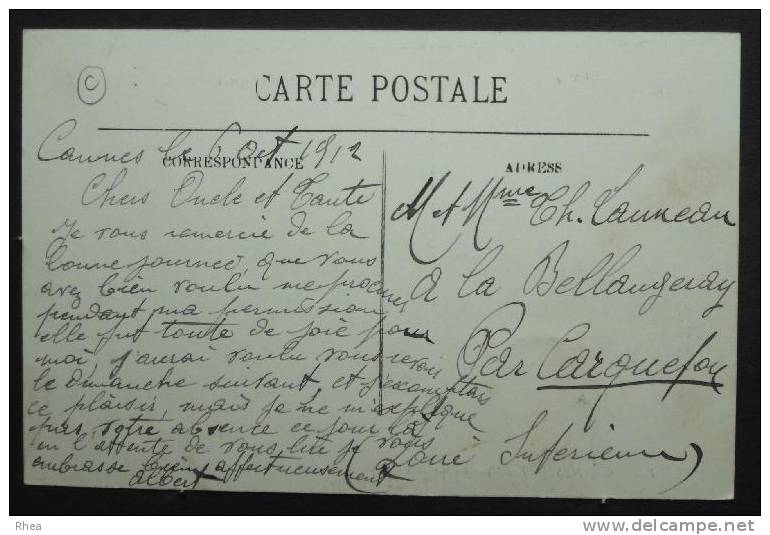 C
CARTE POSTALE
CORRESPONDANCE
ADRESS
Cannes le 6 Oct 1912
Chers Oncle et Tante
Je vous remercie de la
bonne journeé, que vous
avez bien voulu me procurer
pendant ma permission
elle fut toute de joie pour
moi, j'aurai voulu vous revoir
le dimanche suivant, et j'escomptais
ce plaisir, mais je ne m'explique
pas votre absence ce jour là
en l'attente de vous lire je vous
embrasse bien affectueusement
albert
M et Mme Th. Launeau
a la Bellangeray
Par Carquefou
(Loire Inferieure)
Rhea
http://www.delcampe.net